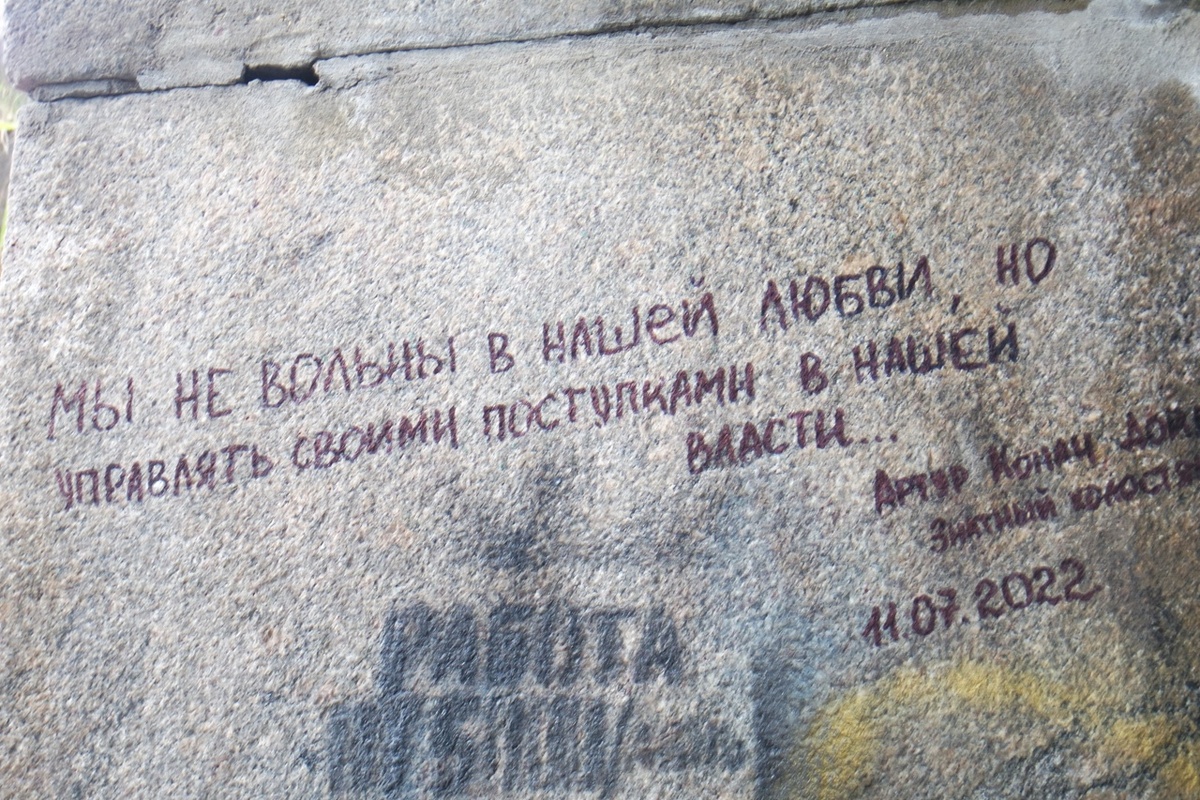 МЫ НЕ ВОЛЬНЫ В НАШЕЙ ЛЮБВИ, НО
УПРАВЛЯТЬ СВОИМИ ПОСТУПКАМИ В НАШЕЙ
ВЛАСТИ...
Артур Конан
Знатный
11.07.2022
РАБОТА